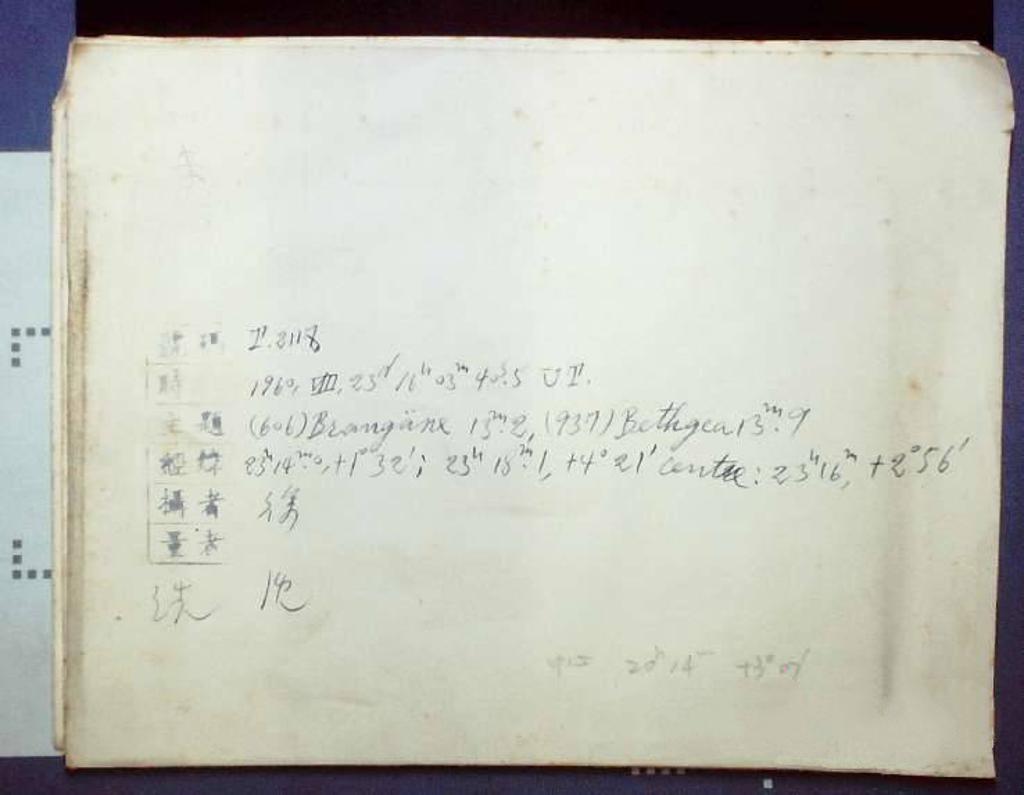 號碼 I.2118
時 1960, VIII, 23ᵈ 16ʰ 03ᵐ 40ˢ.5 U T.
主題 (606) Brangäne 13ᵐ.2, (937) Bethgea 13ᵐ.9
經緯 23ʰ14ᵐ.0, +1°32′; 23ʰ 18ᵐ.1, +4° 21′ Centre: 23ʰ16ᵐ, +2°56′
攝者 徐
量者
洗 沈
中心 14ᵐ +3°